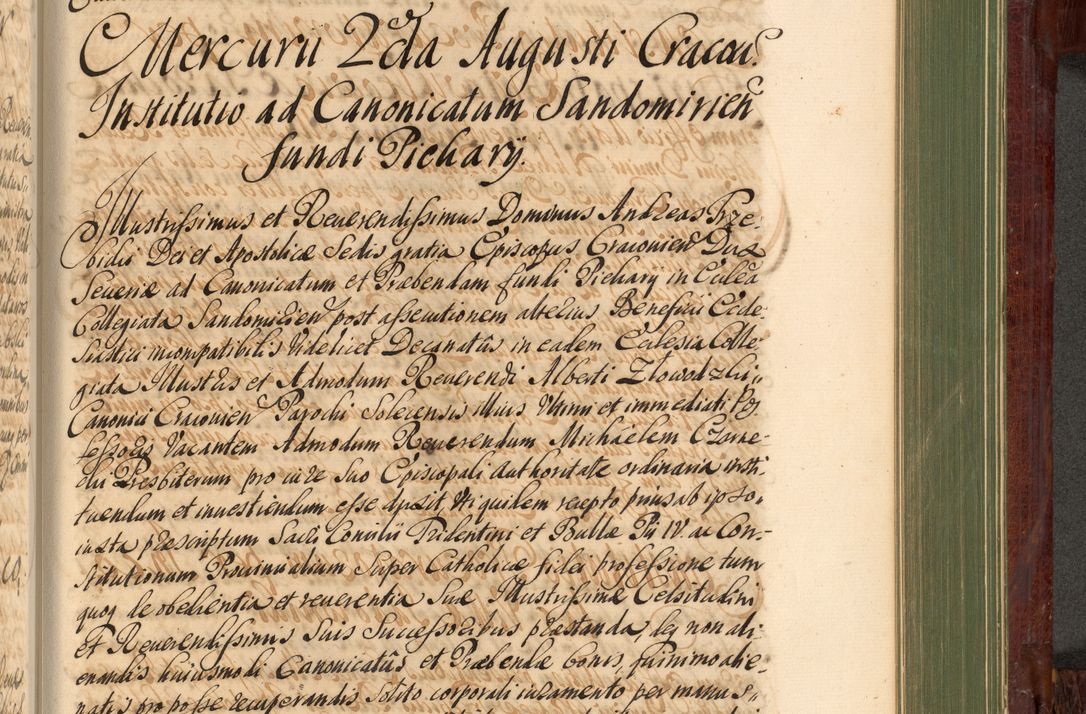 Mercurii 2da Augusti Cracov:
Institutio ad Canonicatum Sandomirien
fundi Piekary.
Illustrissimus et Reverendissimus Dominus Andreas Trze-
bicki Dei et Apostolicæ Sedis gratia Episcopus Cracovien Dux
Severiæ ad Canonicatum et Præbendam fundi Piekary in Ecclesia
Collegiata Sandomirien post assecutionem alterius Beneficii Eccle-
siastici incompatibilis videlicet Decanatûs in eadem Ecclesia Colle-
giata Illustris et Admodum Reverendi Alberti Złowodzki
Canonici Cracovien Parochi Solecensis illius Ultimi et immediati Pos
sessoris Vacantem Admodum Reverendum Michaelem Czarne-
cki Presbiterum pro iure suo Episcopali Authoritate ordinaria insti-
tuendum et investiendum esse duxit, Uti quidem recepto prius ab ipso
iuxta præscriptum Sacri Concilii Tridentini et Bullæ Pii IV. ac Con-
stitutionum Provincialium super Catholicæ fidei professione tum
quoq de obedientia et reverentia Suæ Illustrissimæ Celsitudini
et Reverendissimis Suis Successoribus præstanda, deq non ali-
enandis huiusmodi Canonicatûs et Præbendæ bonis, quinimo alie-
natis pro posse recuperandis solito corporali iuramento per manus